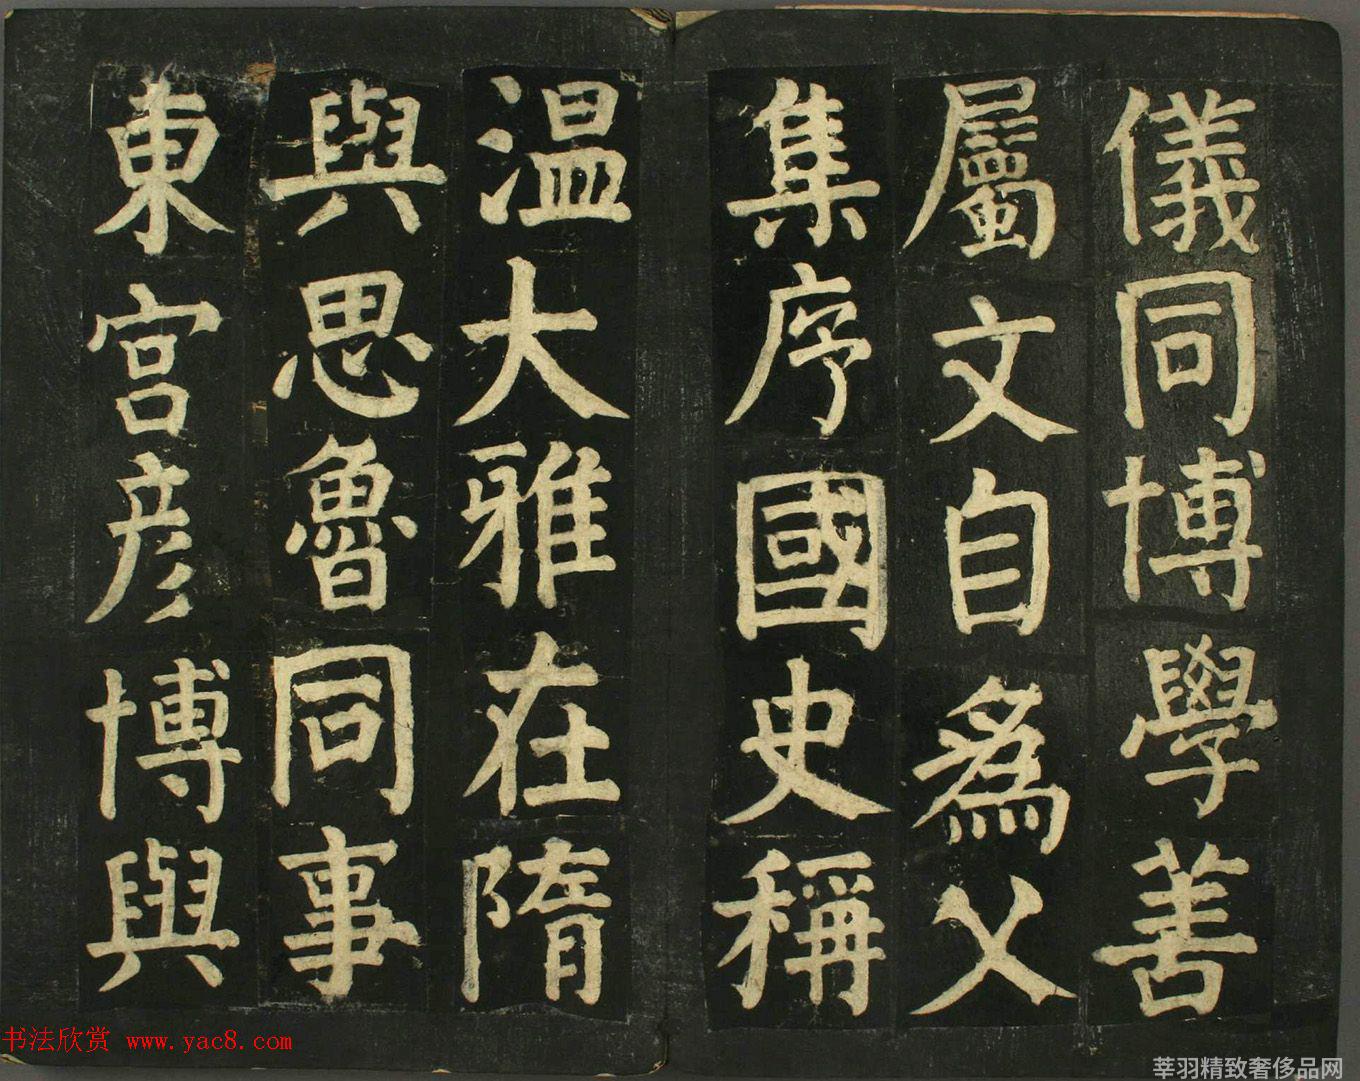 儀同博學善
屬文自為父
集序國史稱
温大雅在隋
與思魯同事
東宮彦博與
书法欣赏 www.yac8.com
莘羽精致奢侈品网